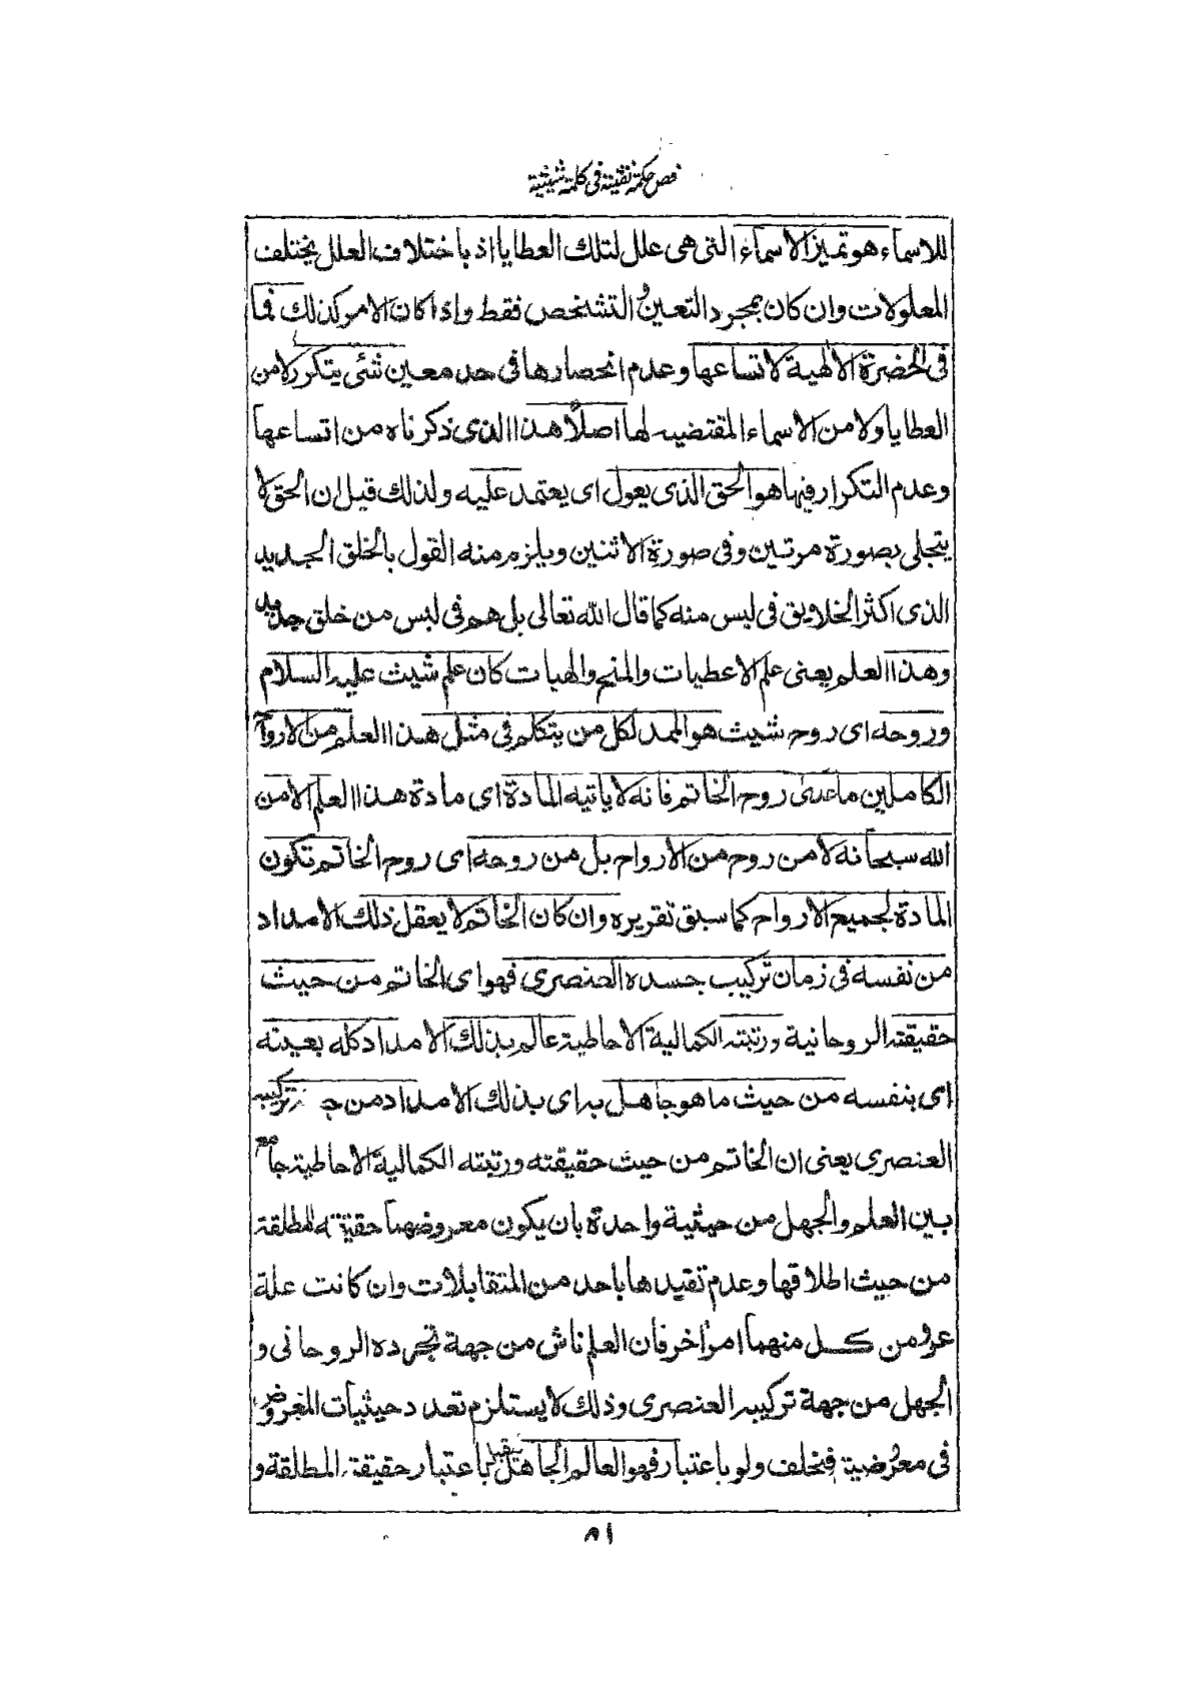 فص حكمة نفثية فى كلمة شيثية
للاسماء هو تميز الاسماء التى هى علل لتلك العطايا اذ باختلاف العلل يختلف
المعلولات وان كان بمجرد التعين والتشخص فقط واذا كان الامر كذلك فما
فى الحضرة الالهية لاتساعها وعدم انحصارها فى حد معين شئى يتكرر لا من
العطايا ولا من الاسماء المقتضيه لها اصلاً هذا الذى ذكرناه من اتساعها
وعدم التكرار فيها هو الحق الذى يعول اى يعتمد عليه ولذلك قيل ان الحق لا
يتجلى بصورة مرتين وفى صورة الاثنين ويلزم منه القول بالخلق الجديد
الذى اكثر الخلايق فى لبس منه كما قال الله تعالى بل هم فى لبس من خلق جديد
وهذا العلم يعنى علم الاعطيات والمنح والهبات كان علم شيث عليه السلام
وروحه اى روح شيث هو الممد لكل من يتكلم فى مثل هذا العلم من الارواح
الكاملين ما عدى روح الخاتم فانه لا ياتيه المادة اى مادة هذا العلم الا من
الله سبحانه لا من روح من الارواح بل من روحه اى روح الخاتم تكون
المادة لجميع الارواح كما سبق تقريره وان كان الخاتم لا يعقل ذلك الامداد
من نفسه فى زمان تركيب جسده العنصرى فهو اى الخاتم من حيث
حقيقته الروحانية ورتبته الكمالية الاحاطية عالم بذلك الامداد كله بعينه
اى بنفسه من حيث ما هو جاهل به اى بذلك الامداد من تركيبه
العنصرى يعنى ان الخاتم من حيث حقيقته ورتبته الكمالية الاحاطية جامع
بين العلم والجهل من حيثية واحدة بان يكون معروضهما حقيقته المطلقة
من حيث اطلاقها وعدم تقيدها باحد من المتقابلات وان كانت علة
عروض كل منهما امرًا اخر فان العلم ناش من جهة تجرده الروحانى و
الجهل من جهة تركيبه العنصرى وذلك لا يستلزم تعدد حيثيات المعروض
فى معروضية فيخلف ولو باعتبار فهو العالم الجاهل باعتبار حقيقته المطلقة و
٨١